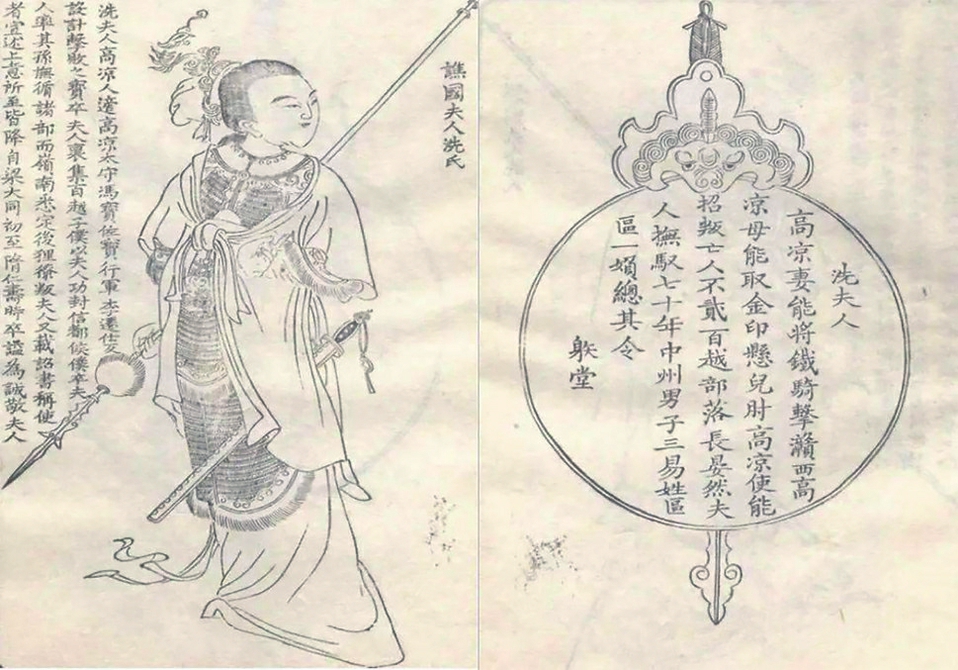 譙國夫人洗氏
洗夫人高凉人適高凉太守馮寶佐寶行軍李遷仕反
設計擊敗之寶卒夫人褱集百越子僕以夫人功封信都候僕卒夫
人率其孫撫循諸部而嶺南悉定後狸獠叛夫人又載詔書稱使
者宣述上意所至皆降自梁大同初至隋仁壽時卒諡為誠敬夫人
洗夫人
高凉妻能將鐵騎擊灨西高
凉母能取金印懸兒肘高凉使能
招叛亡人不貳百越部落長晏然夫
人撫馭七十年中州男子三易姓區
區一媍總其令
堂